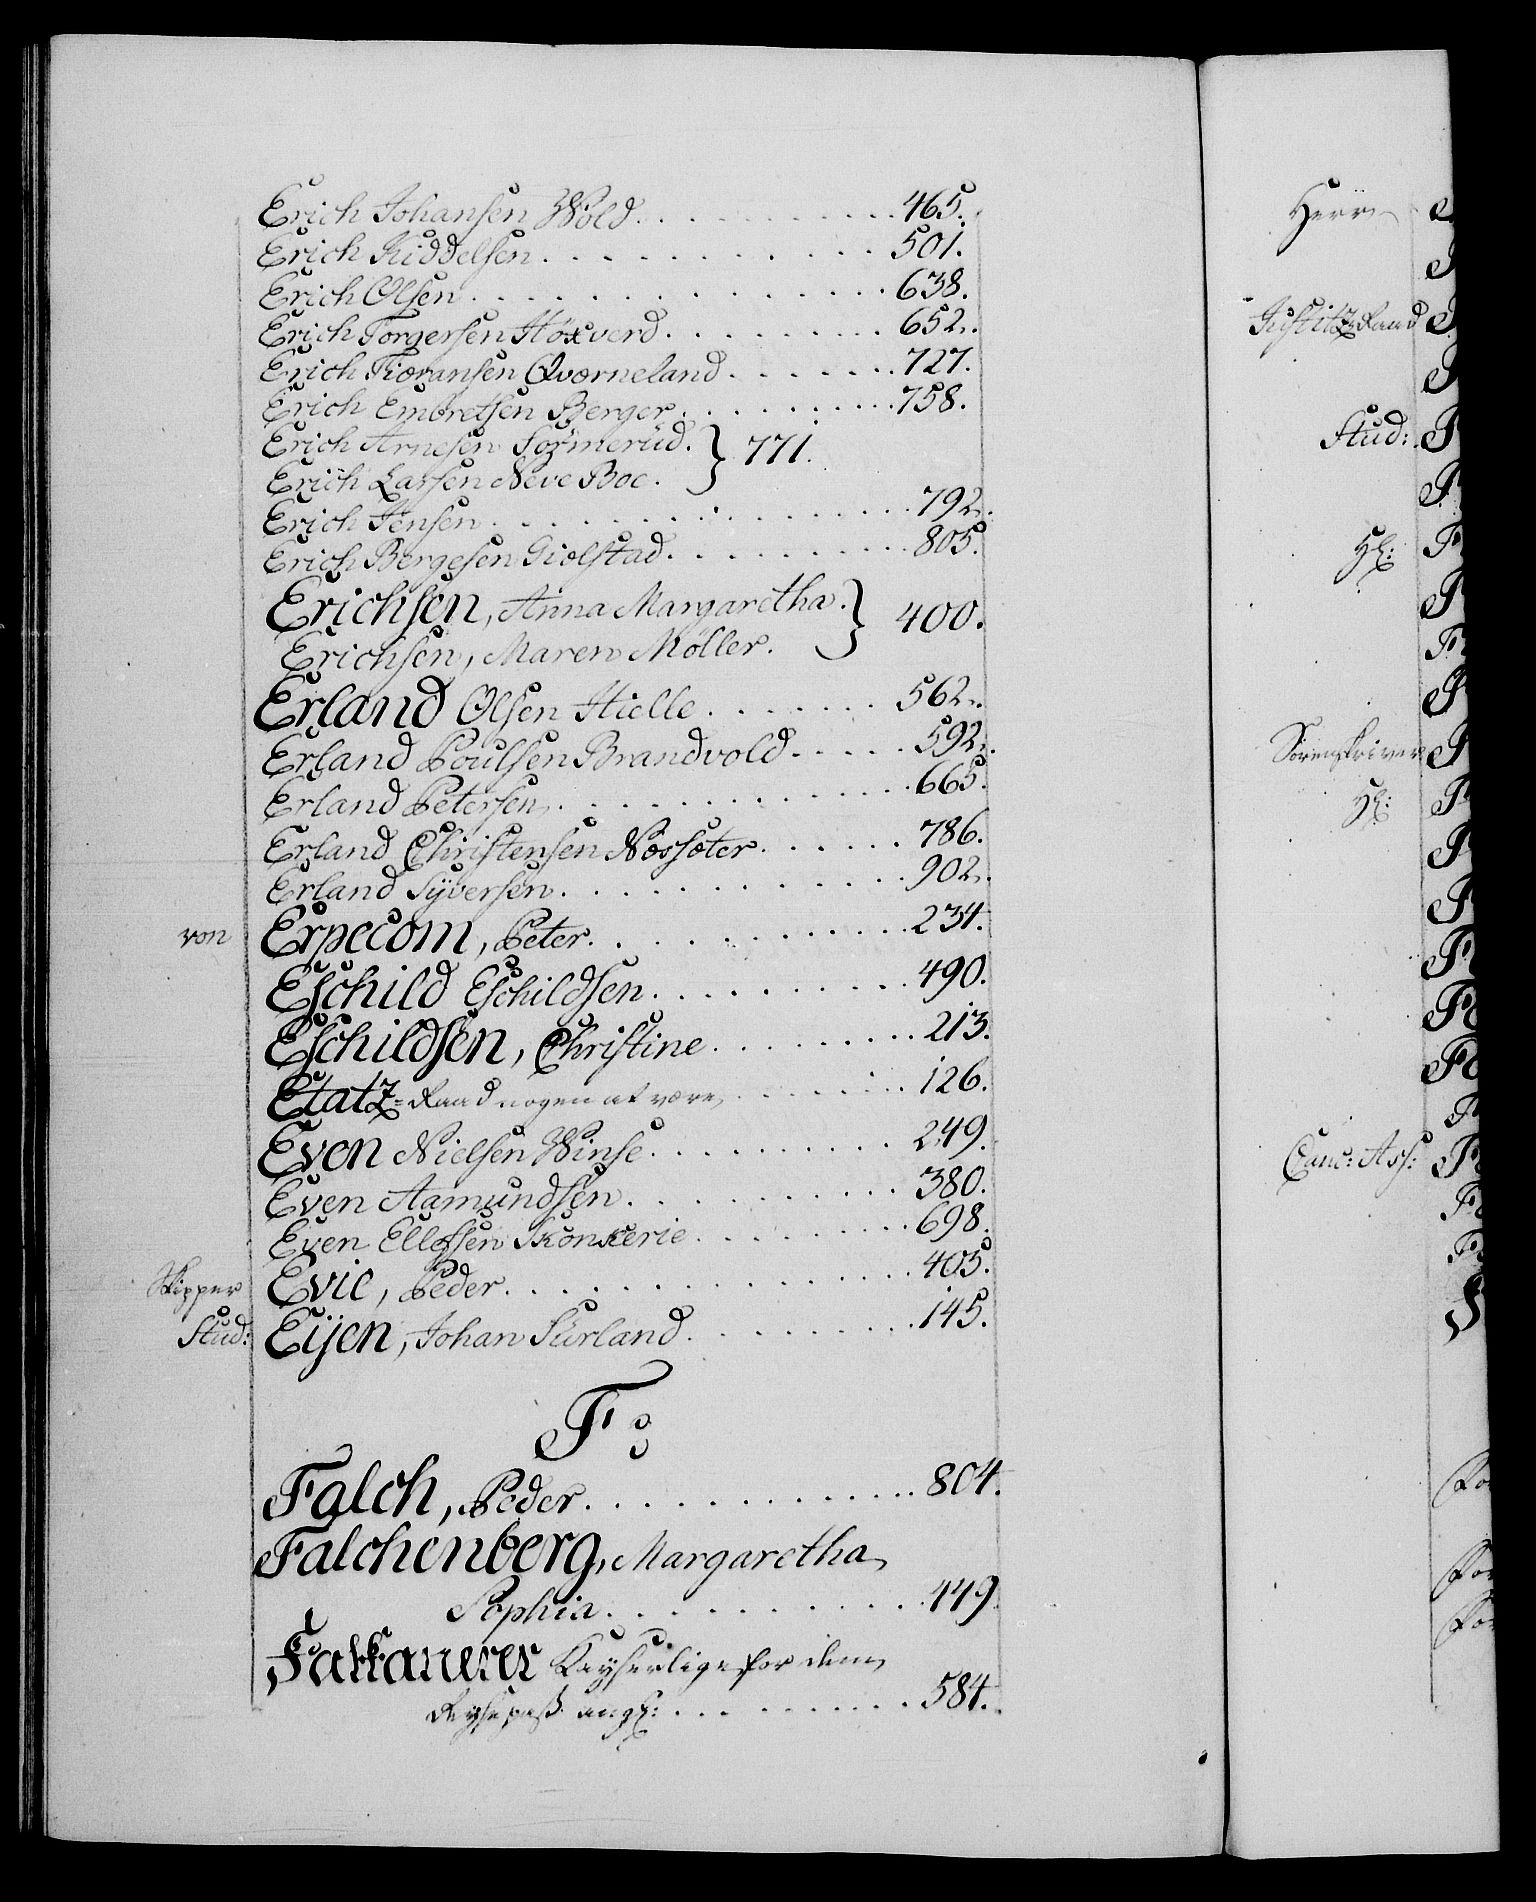 Erich Johansen Wold. . . . . . . . . . 465.
Erich Kiddelsen . . . . . . . . . . . . 501.
Erich Olsen . . . . . . . . . . . . . . 638.
Erich Torgersen Høxverd . . . . . . . . 652.
Erich Tiøransen Qværneland . . . . . . . 727.
Erich Embretsen Berger . . . . . . . . . 758.
Erich Arnesen Sørmerüd. } 771.
Erich Larsen Neve Boe.
Erich Jensen . . . . . . . . . . . . . . 792.
Erich Bergesen Giølstad . . . . . . . . 805.
Erichsen, Anna Margaretha. } 400.
Erichsen, Maren Møller.
Erland Olsen Hielle . . . . . . . 562.
Erland Poulsen Brandvold . . . . . 592.
Erland Petersen . . . . . . . . . . . 665.
Erland Christensen Næssæter . . . . . . 786.
Erland Syversen . . . . . . . . . . . . 902.
von Erpecom, Peter . . . . . . . . . . 234.
Eschild Eschildsen . . . . . . . . . . 490.
Eschildsen, Christine . . . . . . . . . 213.
Etatz-Raad nogen at være . . . . . . . 126.
Even Nielsen Winse . . . . . . . . . . 249.
Even Aamundsen . . . . . . . . . . . . 380.
Even Ellefsen Skonkerie . . . . . . . . 698.
Skipper Evie, Peder . . . . . . . . . . 405.
Stud: Eÿen, Johan Sürland . . . . . . . 145.
F:
Falch, Peder . . . . . . . . . . . . . 804.
Falchenberg, Margaretha
Sophia . . . . . . . . . . . 449.
Falkanerer Kayserlige for dem
Reysepass angl: . . . . . . . . . 584.
Herr
Justitz Raad
Stud:
Hl:
Sorenskriver
Hl:
Canc: Ass: